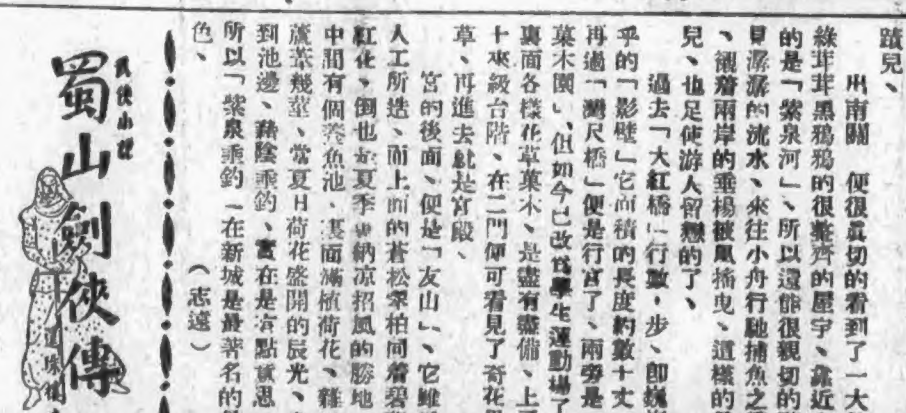 蹟兒、
出南關　便很眞切的看到了一大
綠茸茸黑鴉鴉的很整齊的屋宇、靠近
的是「紫泉河」、所以還能很親切的
見潺潺的流水、來往小舟行馳捕魚之
、襯着兩岸的垂楊被風搖曳、這樣的
兒、也足使游人留戀的了、
過去「大紅橋」行數・步、卽巍
乎的「影壁」它面積的長度約數十丈
再過「灣尺橋」便是行宮了、兩旁是
菓木園」、但如今已改爲學生運動場了
裏面各樣花草菓木、是盡有盡備、上
十來級台階、在二門便可看見了奇花
草、再進去就是宮殿、
宮的後面、便是「友山」、它雖
人工所造、而上面的蒼松翠柏同着碧
紅花、倒也是夏季納凉招風的勝地
中間有個養魚池、裏面滿植荷花、雜
蘆葦幾莖、常夏日荷花盛開的辰光、
到池邊、藉陰垂釣、實在是有點意思
所以「紫泉垂釣」在新城是最著名的
色、　（志遠）
武俠小說
蜀山劍俠傳
還珠樓